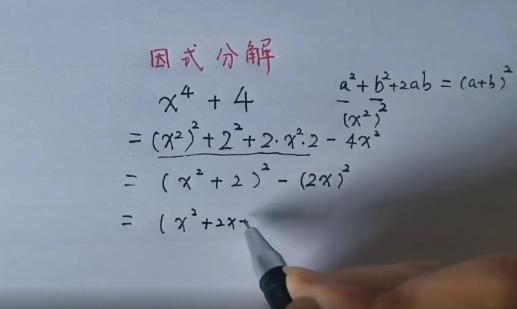 因式分解
x⁴ + 4
a² + b² + 2ab = (a+b)²
(x²)²
= (x²)² + 2² + 2·x²·2 - 4x²
= (x² + 2)² - (2x)²
= (x² + 2x +